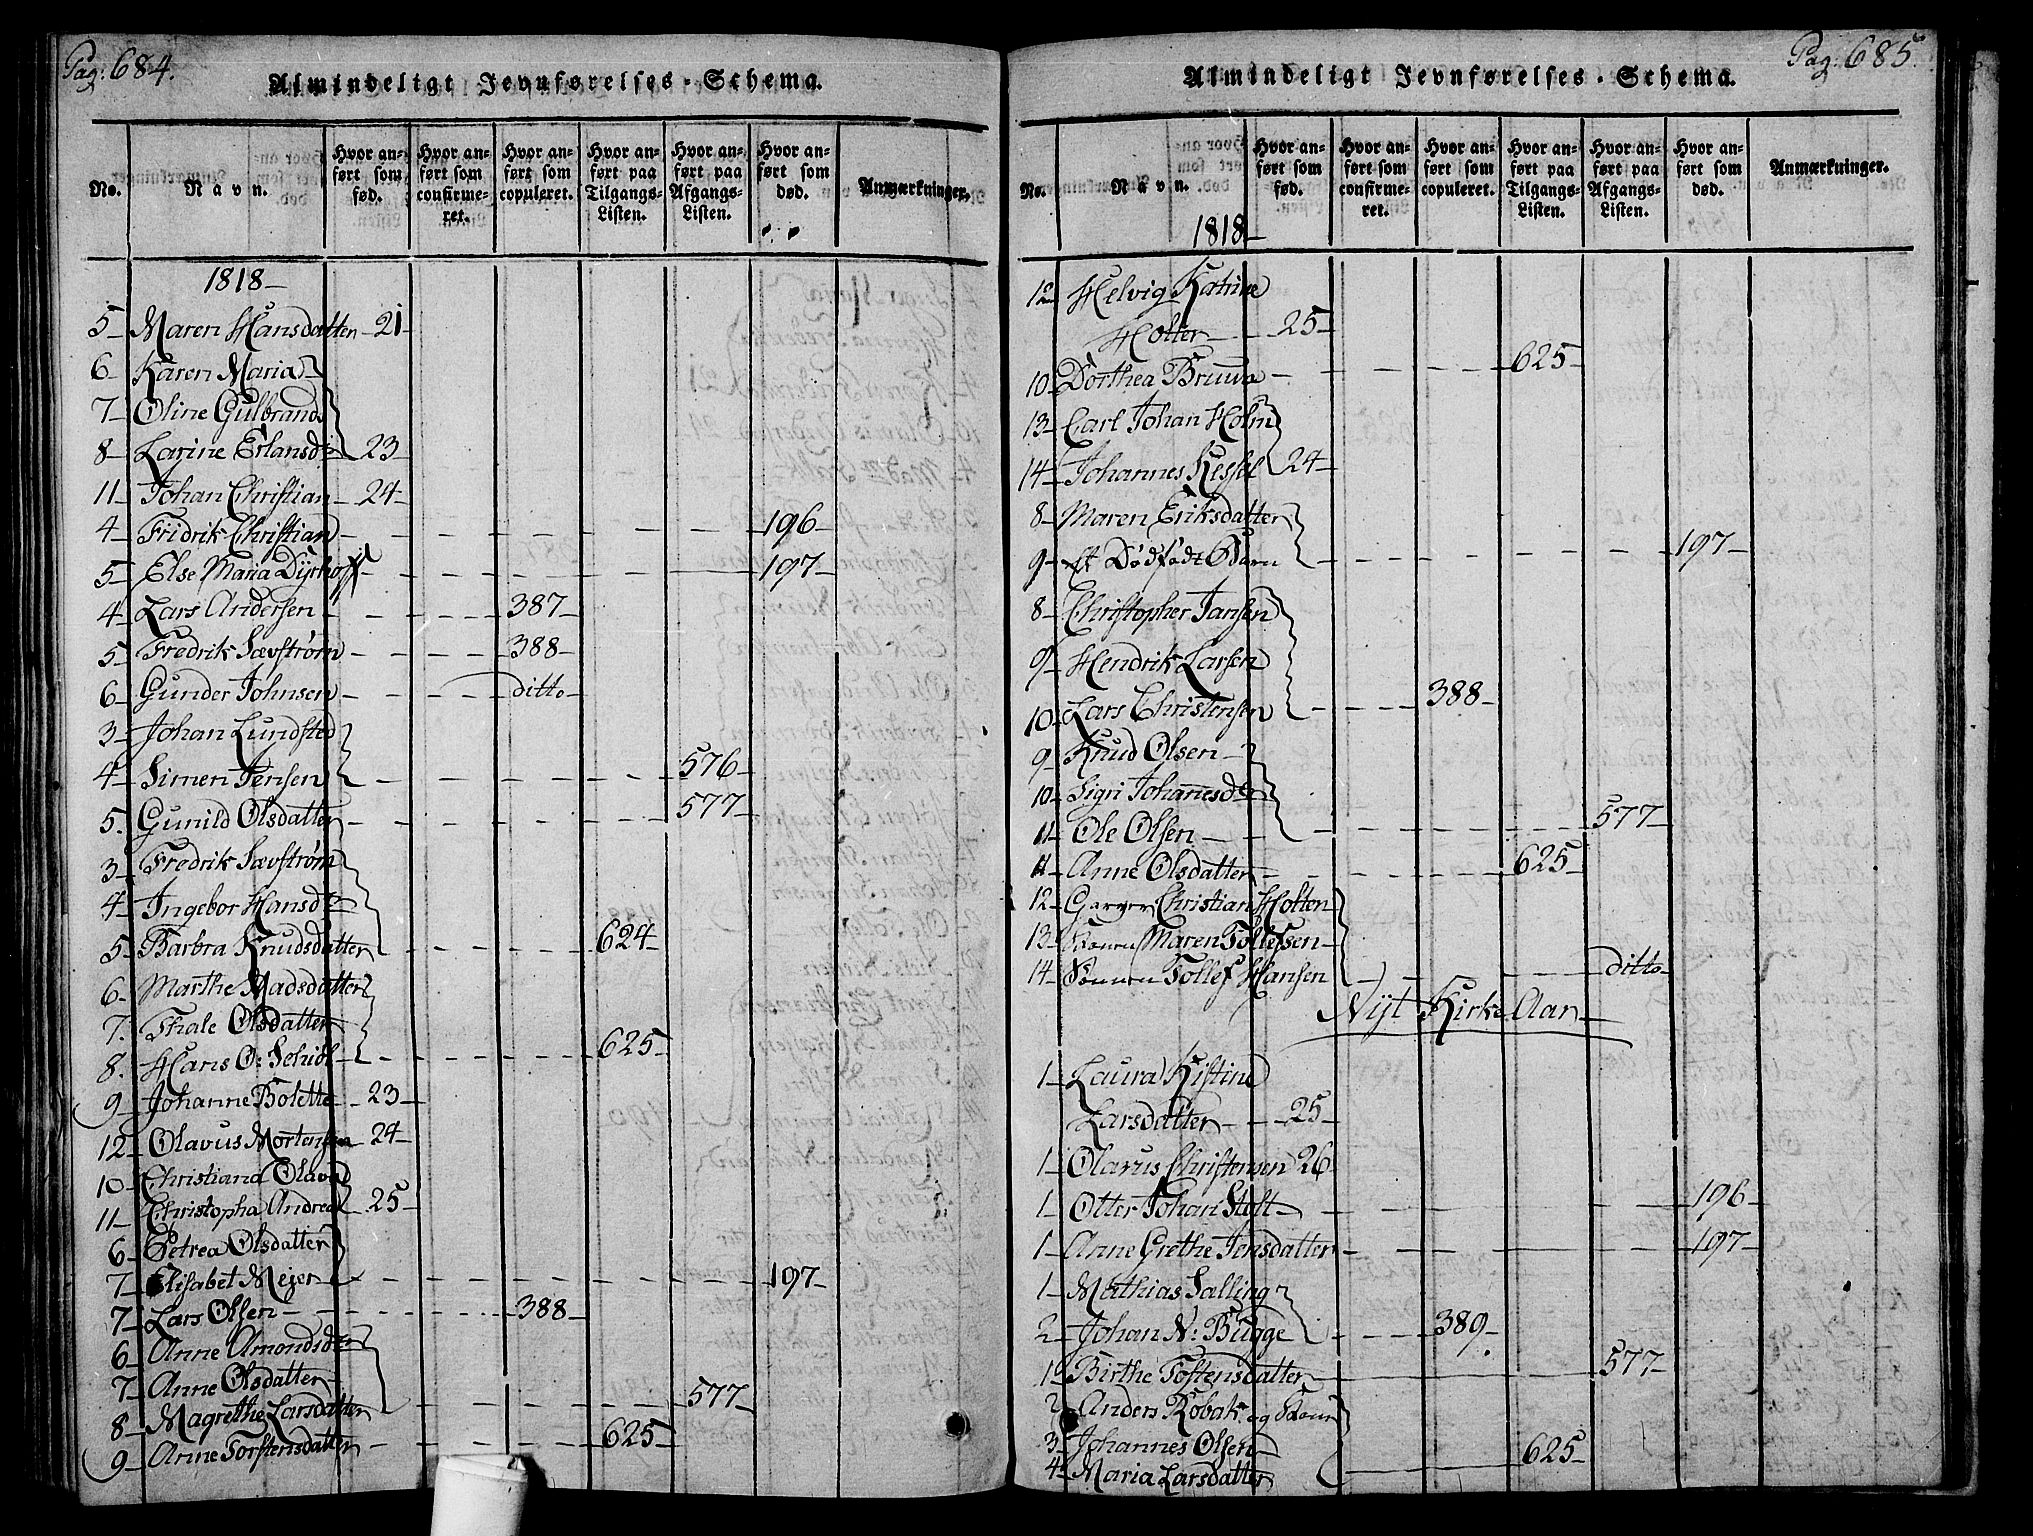 Pag: 684.
Almindeligt Jevnførelses-Schema.
No. Navn. Hvor anført som fød. Hvor anført som confirmeret. Hvor anført som copuleret. Hvor anført paa Tilgangs-Listen. Hvor anført paa Afgangs-Listen. Hvor anført som død. Anmærkninger.
1818-
5- Maren Hansdatter -21-
6- Karen Maria
7- Oline Gulbrands
8- Larine Erlandsdr 23-
11- Johan Christian -24-
4- Fridrik Christian - - - - - 196-
5- Else Maria Dyrhoff- - - - - 197-
4- Lars Andersen - - - 387-
5- Fredrik Sævstrøm - - - 388-
6- Gunder Johnsen - - - ditto-
3- Johan Lundsted
4- Simen Jensen - - - - 576-
5. Gunild Olsdatter - - - - 577-
3- Fredrik Sævstrøm
4- Ingebor Hansdr
5- Barbra Knudsdatter - - - 624-
6- Marthe Madsdatter
7. Thale Olsdatter
8. Hans O: Schidl - - - 625-
9- Johanne Bolette - 23-
12- Olavus Mortensen 24-
10- Christiana Olava
11- Christopha Andrea 25-
6- Petrea Olsdatter
7- Elisabet Mejer - - - - - 197-
7- Lars Olsen - - - 388-
6- Anne Amondsdr
7- Anne Olsdatter
8- Magrethe Larsdatter - - - - 577-
9- Anne Torstensdatter - - - 625-
Pag: 685.
Almindeligt Jevnførelses-Schema.
No. Navn. Hvor anført som fød. Hvor anført som confirmeret. Hvor anført som copuleret. Hvor anført paa Tilgangs-Listen. Hvor anført paa Afgangs-Listen. Hvor anført som død. Anmærkninger.
1818-
12- Helvig Katrine
Holter - 25-
10- Dorthea Bruun - - - - 625-
13- Carl Johan Holm
14- Johannes Kessel 24-
8- Maren Eriksdatter
9- Et Dødfødt Barn - - - - - 197-
8- Christopher Jansen
9- Hendrik Larsen
10- Lars Christensen - - - 388-
9- Knud Olsen -
10- Sigri Johannesdr
11- Ole Olsen - - - - - 577-
11- Anne Olsdatter - - - - 625-
12- Garver Christian Holten
13- Maren Tollefsen-
14- Tollef Hansen - - - - ditto-
Nyt Kirke Aar
1- Laura Kistine
Larsdatter - - 25-
1- Olavus Christensen 26-
1- Otter Johan Stoft - - - - - 196-
1- Anne Grethe Jensdatter - - - - 197-
1- Mathias Salling
2- Johan N: Bugge - - - 389-
1- Birthe Tostensdatter - - - - 577-
2- Anders Robak og
3- Johannes Olsen
4- Maria Larsdatter - - - 625-